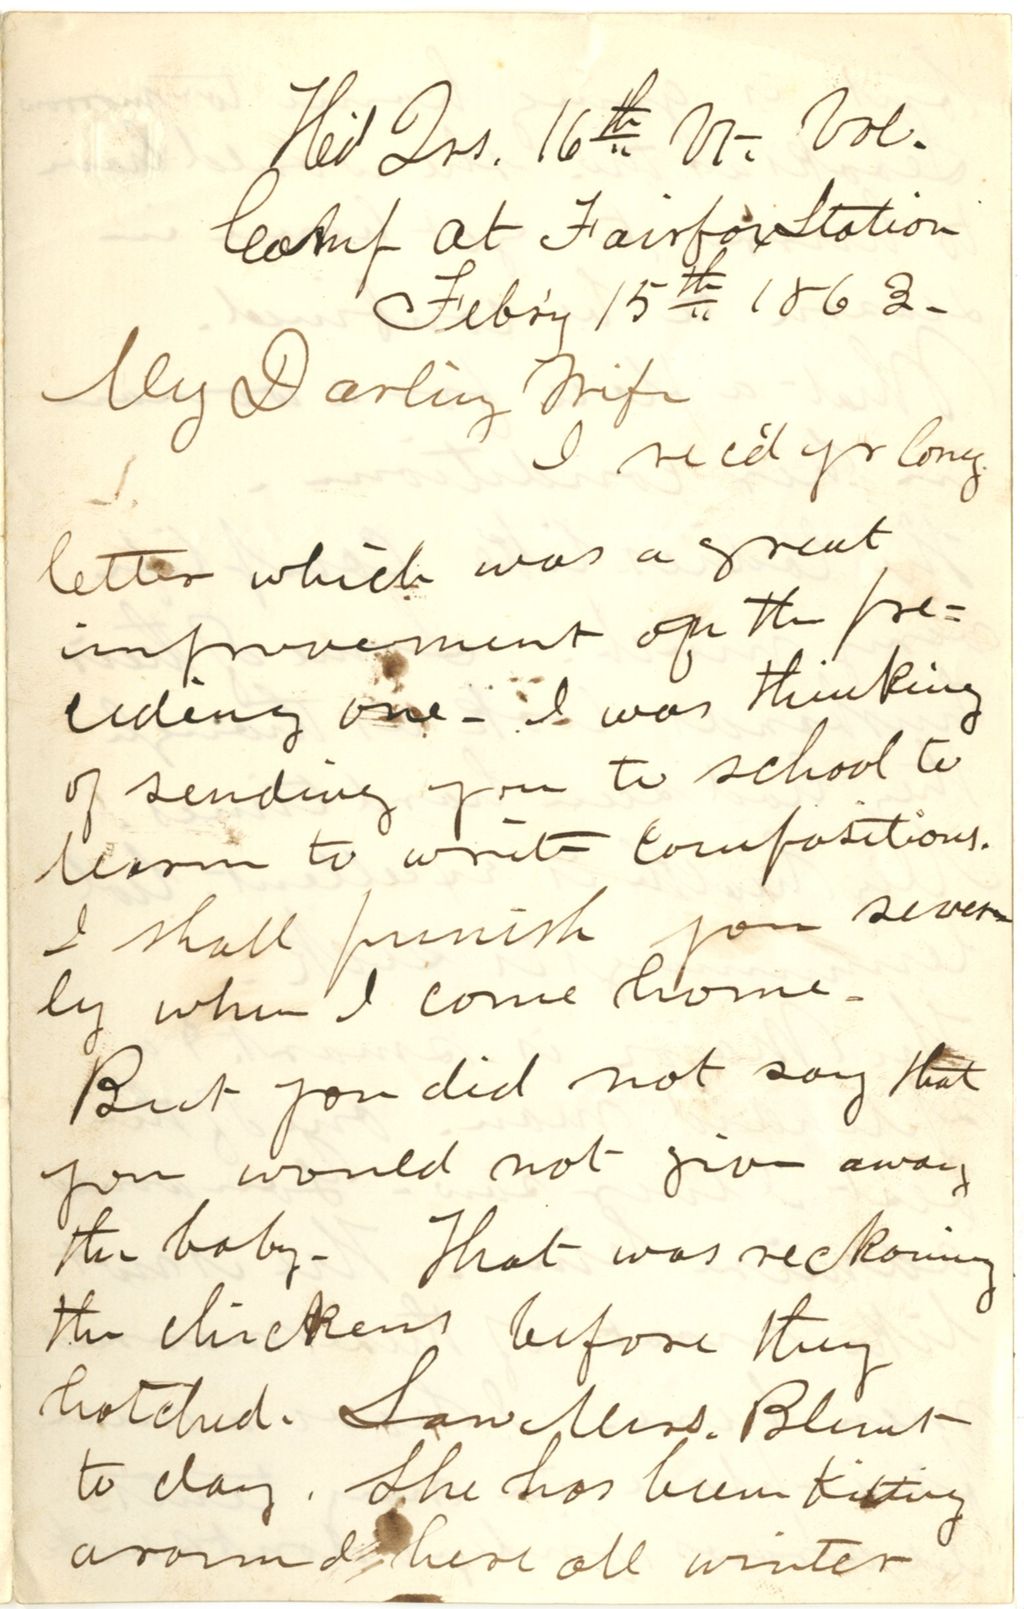 Hd Qrs. 16th Vt. Vol.
Camp at Fairfax Station
Feb'ry 15th 1863-
My Darling Wife
I rec'd yr long
letter which was a great
improvement on the pre=
ceding one- I was thinking
of sending you to school to
learn to write compositions.
I shall punish you severe
ly when I come home-
But you did not say that
you would not give away
the baby- That was reckoning
the chickens before they
hatched. Saw Mrs. Blunt
to day. She has been kiting
around here all winter